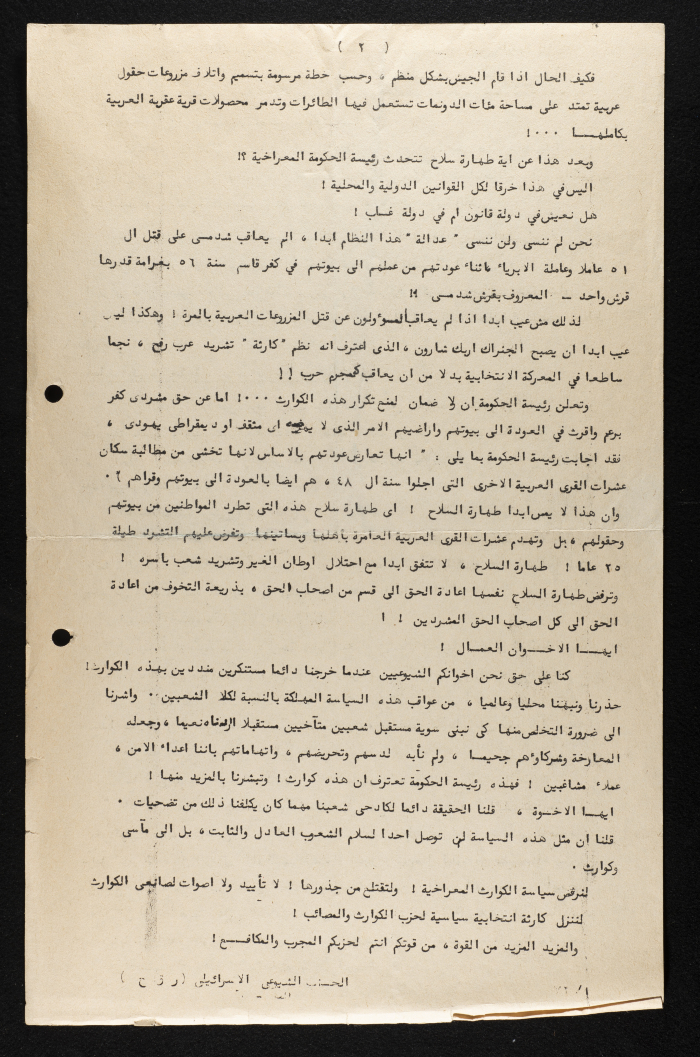 ( ٢ )
فكيف الحال اذا قام الجيش بشكل منظم ، وحسب خطة مرسومة بتسميم واتلاف مزروعات حقول
عربية تمتد على مساحة مئات الدونمات تستعمل فيها الطائرات وتدمر محصولات قرية عقربة العربية
بكاملهـــا ٠٠٠!
وبعد هذا عن اية طهارة سلاح تتحدث رئيسة الحكومة المعراخية ؟!
اليس في هذا خرقا لكل القوانين الدولية والمحلية !
هل نعيش في دولة قانون ام في دولة غـاب !
نحن لم ننسى ولن ننسى " عدالة " هذا النظام ابدا ، الم يعاقب شدمـى على قتل ال
٥١ عاملا وعاملة الابرياء اثناء عودتهم من عملهم الى بيوتهم في كفر قاسم سنة ٥٦ بغرامة قدرها
قرش واحد ــ المعروف بقرش شدمــى ؟!
لذلك مش عيب ابدا اذا لم يعاقب المسؤولون عن قتل المزروعات العربية بالمرة ! وهكذا ليس
عيب ابدا ان يصبح الجنراك اريك شارون ، الذى اعترف انه نظم " كارثة " تشريد عرب رفح ، نجما
ساطعا في المعركة الانتخابية بدلا من ان يعاقب كمجرم حرب !!
وتعلن رئيسة الحكومة ان لا ضمان لمنع تكرار هذه الكوارث ٠٠٠! اما عن حق مشردى كفر
برعم واقرث في العودة الى بيوتهم واراضيهم الامر الذى لا اى مثقف او ديمقراطي يهودى ،
نقد اجابت رئيسة الحكومة بما يلي : " انها تعارض عودتهم بالاساس لانها تخشى من مطالبة سكان
عشرات القرى العربية الاخرى التى اجلوا سنة ال ٤٨ ، هم ايضا بالعودة الى بيوتهم وقراهم " ٠
وان هذا لا يمس ابدا طهارة السلاح ! اى طهارة سلاح هذه التى تطرد المواطنين من بيوتهم
وحقولهم ، بل وتهدم عشرات القرى العربية العامرة بأهلها وبساتينها وتفرض عليهم التشرد طيلة
٢٥ عاما ! طهارة السلاح ، لا تتفق ابدا مع احتلال اوطان الغير وتشريد شعب باسره !
وترفض طهارة السلاح نفسها اعادة الحق الى قسم من اصحاب الحق ، بذريعة التخوف من اعادة
الحق الى كل اصحاب الحق المشردين ! !
ايهـــا الاخــوان العمــال !
كنا على حق نحن اخوانكم الشيوعيين عندما خرجنا دائما مستنكرين منددين بهذه الكوارث!
حذرنا ونبهنا محليا وعالميا ، من عواقب هذه السياسة المهلكة بالنسبة لكلا الشعبين ٠٠ واشرنا
الى ضرورة التخلص منها كى نبنى سوية مستقبل شعبين متآخيين مستقبلا اردناه نعيما ، وجعله
المعارخة وشركاؤهم جحيما ، ولم نأبه لدسهم وتحريضهم ، واتهاماتهم باننا اعداء الامن ،
عملاء مشاغبين ! فهذه رئيسة الحكومة تعترف ان هذه كوارث ! وتبشرنا بالمزيد منها !
ايهــا الاخـوة ، قلنا الحقيقة دائما لكادحى شعبنا مهما كان يكلفنا ذلك من تضحيات ٠
قلنا ان مثل هذه السياسة لن توصل احدا لسلام الشعوب العادل والثابت ، بل الى مآسى
وكوارث ٠
لنرفض سياسة الكوارث المعراخية ! ولتقتلع من جذورها ! لا تأييد ولا اصوات لصانعى الكوارث
لننزل كارثة انتخابية سياسية لحزب الكوارث والمصائب !
والمزيد المزيد من القوة ، من قوتكم انتم لحزبكم المجرب والمكافــح !
الحـزب الشيوعى الاسرائيلى ( ر ق ح )